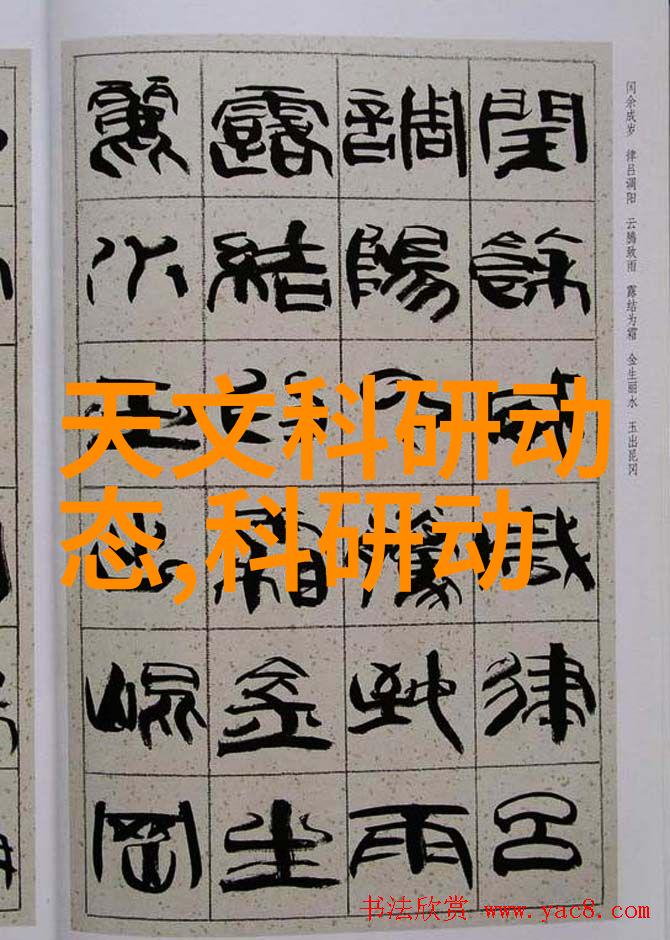 闰余成岁 律吕调阳 云腾致雨 露结为霜 金生丽水 玉出昆冈
閏餘成歲律呂
調陽云騰致雨
露結為霜金生
麗水玉出崐岡
天文科研动
态,科研动
书法欣赏 www.yac8.com